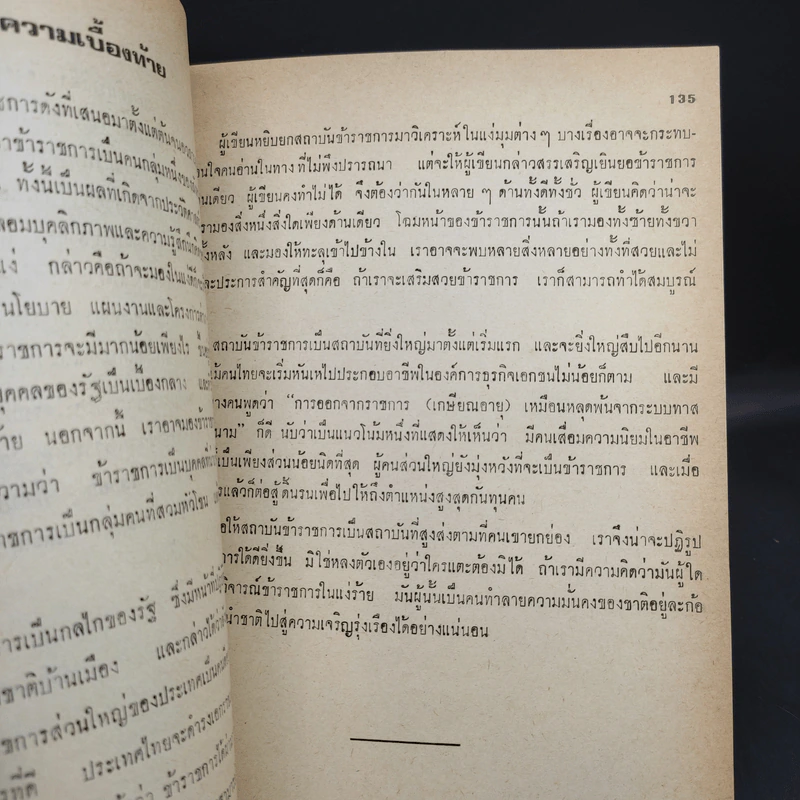 ความเบื้องท้าย
การดังที่เสนอมาตั้งแต่ต้นจน
ข้าราชการเป็นคนกลุ่มหนึ่ง
ทั้งนี้เป็นผลที่เกิดจาก
บุคลิกภาพและความรู้สึก
กล่าวคือถ้าจะมองในแง่
นโยบาย แผนงานและโครงการ
ราชการจะมีมากน้อยเพียงไร
บุคคลของรัฐเป็นเบื้องกลาง
นอกจากนี้ เราอาจมอง
ความว่า ข้าราชการเป็นบุคคล
ราชการเป็นกลุ่มคนที่สวมหัวโขน
การเป็นกลไกของรัฐ ซึ่งมีหน้าที่
ชาติบ้านเมือง และกล่าวได้ว่า
การส่วนใหญ่ของประเทศเป็น
ประเทศไทยจะดำรง
ข้าราชการ
135
ผู้เขียนหยิบยกสถาบันข้าราชการมาวิเคราะห์ในแง่มุมต่าง ๆ บางเรื่องอาจจะกระทบ-
ใจคนอ่านในทางที่ไม่พึงปรารถนา แต่จะให้ผู้เขียนกล่าวสรรเสริญเยินยอข้าราชการ
เดียว ผู้เขียนคงทำไม่ได้ จึงต้องว่ากันในหลาย ๆ ด้านทั้งดีทั้งชั่ว ผู้เขียนคิดว่าน่าจะ
เรามองสิ่งหนึ่งสิ่งใดเพียงด้านเดียว โฉมหน้าของข้าราชการนั้นถ้าเรามองทั้งซ้ายทั้งขวา
หลัง และมองให้ทะลุเข้าไปข้างใน เราอาจจะพบหลายสิ่งหลายอย่างทั้งที่สวยและไม่
ประการสำคัญที่สุดก็คือ ถ้าเราจะเสริมสวยข้าราชการ เราก็สามารถทำได้สมบูรณ์
สถาบันข้าราชการเป็นสถาบันที่ยิ่งใหญ่มาตั้งแต่เริ่มแรก และจะยิ่งใหญ่สืบไปอีกนาน
คนไทยจะเริ่มหันเหไปประกอบอาชีพในองค์การธุรกิจเอกชนไม่น้อยก็ตาม และมี
คนพูดว่า “การออกจากราชการ (เกษียณอายุ) เหมือนหลุดพ้นจากระบบทาส
นาม” ก็ดี นับว่าเป็นแนวโน้มหนึ่งที่แสดงให้เห็นว่า มีคนเสื่อมความนิยมในอาชีพ
เป็นเพียงส่วนน้อยนิดที่สุด ผู้คนส่วนใหญ่ยังมุ่งหวังที่จะเป็นข้าราชการ และเมื่อ
แล้วก็ต่อสู้ดิ้นรนเพื่อไปให้ถึงตำแหน่งสูงสุดกันทุกคน
ให้สถาบันข้าราชการเป็นสถาบันที่สูงส่งตามที่คนเขายกย่อง เราจึงน่าจะปฏิรูป
การให้ดียิ่งขึ้น มิใช่หลงตัวเองอยู่ว่าใครแตะต้องมิได้ ถ้าเรามีความคิดว่ามันผู้ใด
วิจารณ์ข้าราชการในแง่ร้าย มันผู้นั้นเป็นคนทำลายความมั่นคงของชาติอยู่ละก้อ
นำชาติไปสู่ความเจริญรุ่งเรืองได้อย่างแน่นอน